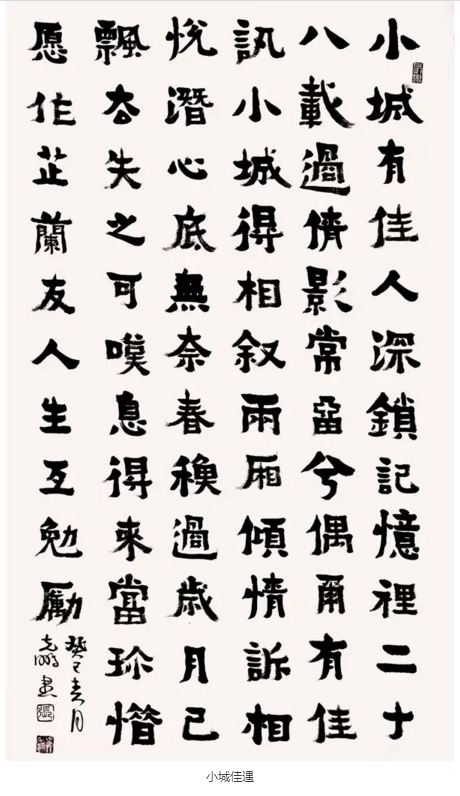 小城有佳人深鎖記憶裡二十
八載過倩影常留兮偶爾有佳
訊小城得相叙兩厢傾情訴相
悅潛心底無奈春穐過歲月已
飄去失之可嘆息得來當珍惜
愿作芷蘭友人生互勉勵
癸春月
書
小城佳遇